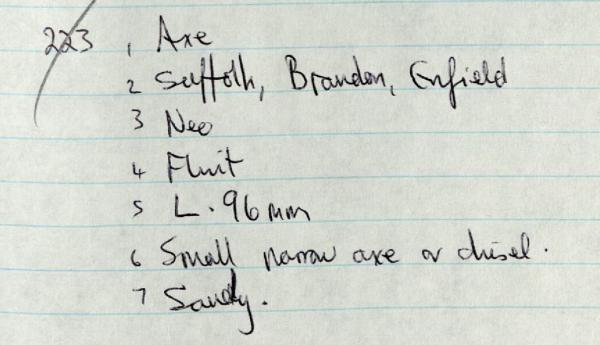 223 1 Axe
2 Suffolk, Brandon, Enfield
3 Neo
4 Flint
5 L. 96mm
6 Small narrow axe or chisel.
7 Sandy.